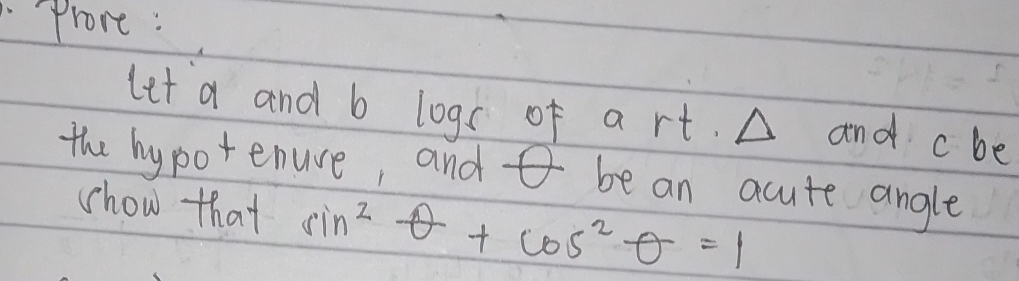 Prove :
let a and b legs of a rt. Δ and c be
the hypotenuse, and θ be an acute angle
show that sin² θ + cos² θ = 1